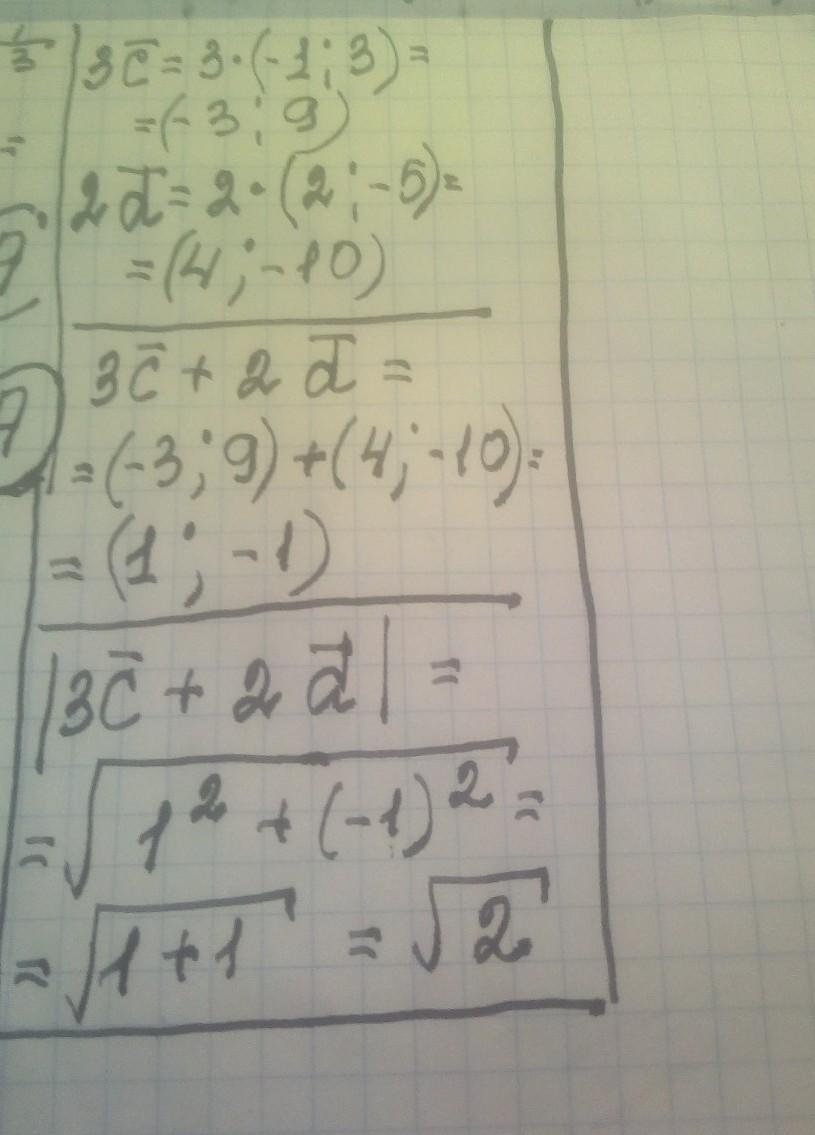 3c̅ = 3·(-1; 3) =
= (-3; 9)
2d̅ = 2·(2; -5) =
= (4; -10)
3c̅ + 2d̅ =
= (-3; 9) + (4; -10) =
= (1; -1)
|3c̅ + 2d̅| =
= √(1² + (-1)²) =
= √(1+1) = √2